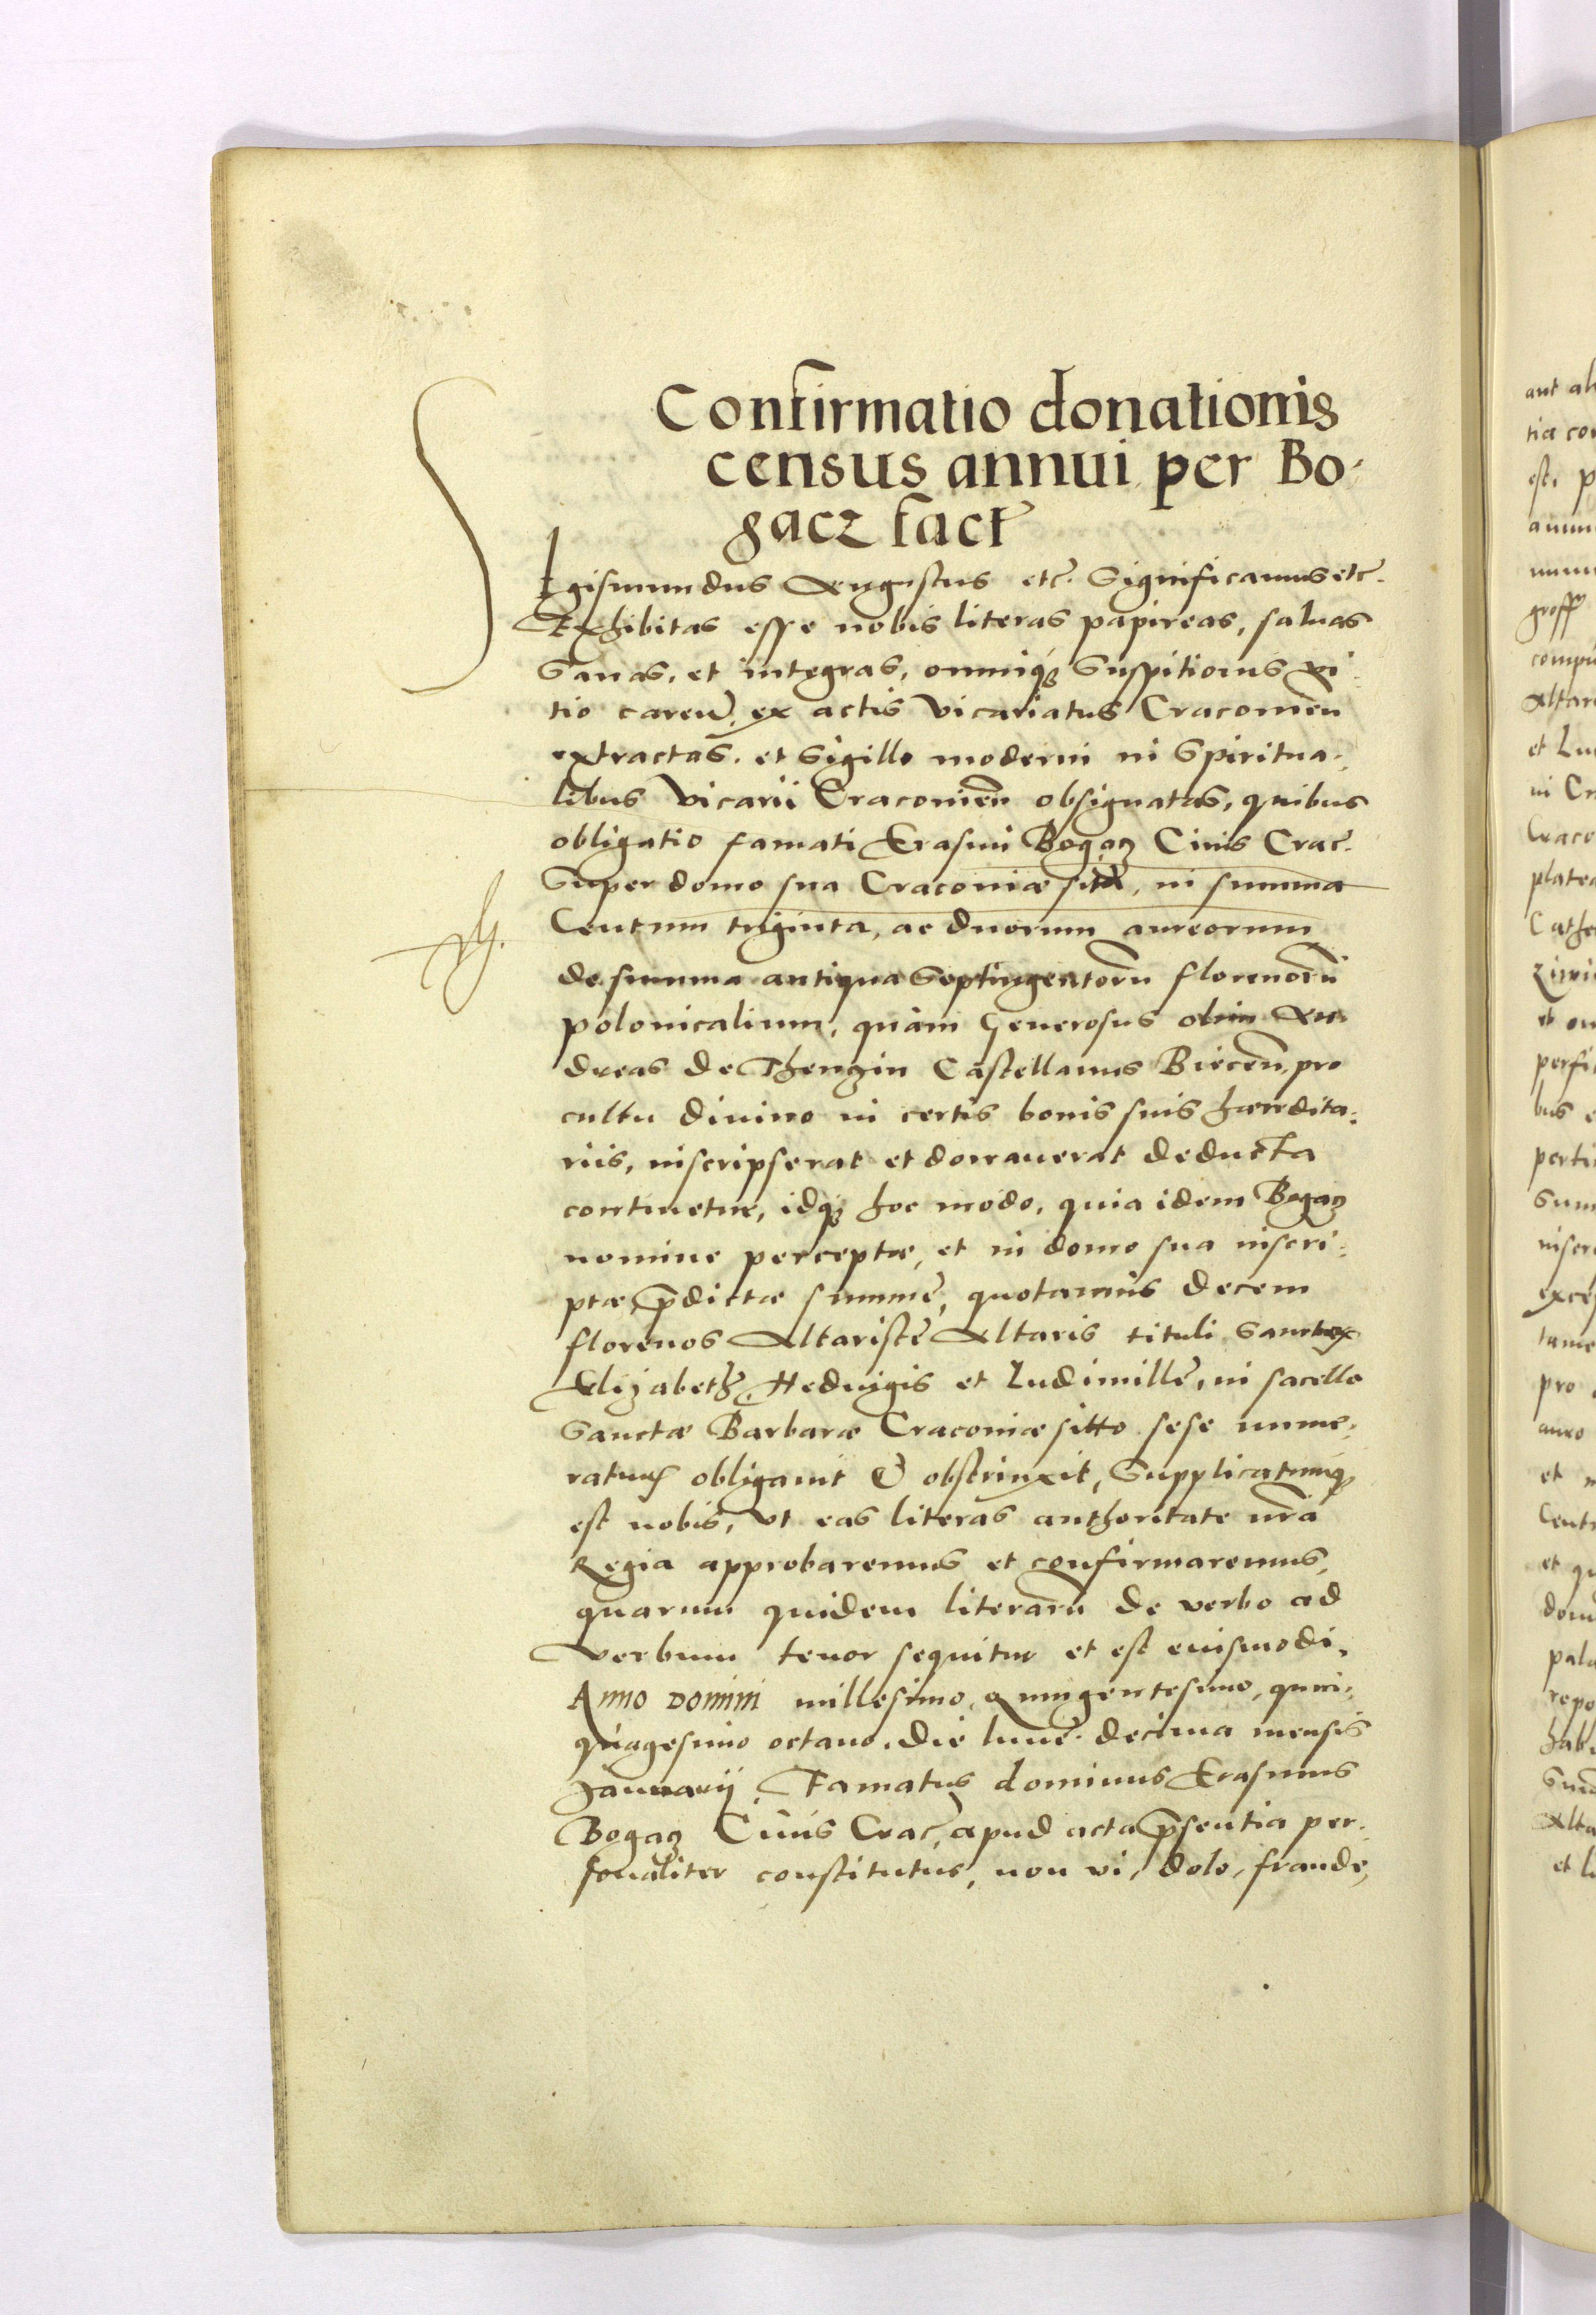 Confirmatio donationis
census annui per Bo-
gacz fact
SIgismundus Augustus etc. Significamus etc.
Exhibitas esse nobis literas papireas, saluas
Sanas, et integras, omniq3 Suspitionis vi-
tio caren, ex actis Vicariatus Cracovien
extractas, et Sigillo moderni in Spiritua-
libus Vicarii Cracovien obsignatas, quibus
obligatio famati Erasmi Bogacz Civis Crac.
Super domo sua Cracoviæ sita, in summa
Centum triginta, ac duorum aureorum
de summa antiqua Septingentorū florenorū
polonicalium, quàm Generosus olim An-
dreas de Thenzin Castellanus Biecen, pro
cultu divino in certis bonis suis hæredita-
riis, inscripserat et donauerat deducta
continetur, idq3 hoc modo, quia idem Bogacz
nomine perceptæ, et in domo sua inscri-
ptæ p̄dictæ summę, quotannis decem
florenos Altaristę Altaris tituli Sanctar
Elizabeth, Hedvigis et Ludimillę, in sacello
Sanctæ Barbaræ Cracoviæ sitto sese nume-
raturū obligavit & obstrinxit, Supplicatumq3
est nobis, vt eas literas authoritate nr̄a
Regia approbaremus et confirmaremus,
quarum quidem literarū de verbo ad
verbum tenor sequitur et est eiusmodi.
Anno Domini millesimo, quingentesimo, quin-
quagesimo octauo, die lunę decima mensis
Januarij, Famatus dominus Erasmus
Bogacz Ciuis Crac, apud acta p̄sentia per-
sonaliter constitutus, non vi, dolo, fraude,
aut al
est, p
groff
compu
Altar
et Lu
in Cr
Craco
platea
Cathe
perfi
bus e
perti
Sum
inscr
excep
tame
pro
et
Cent
et qu
dom
pala
repo
hab
Alta
et l